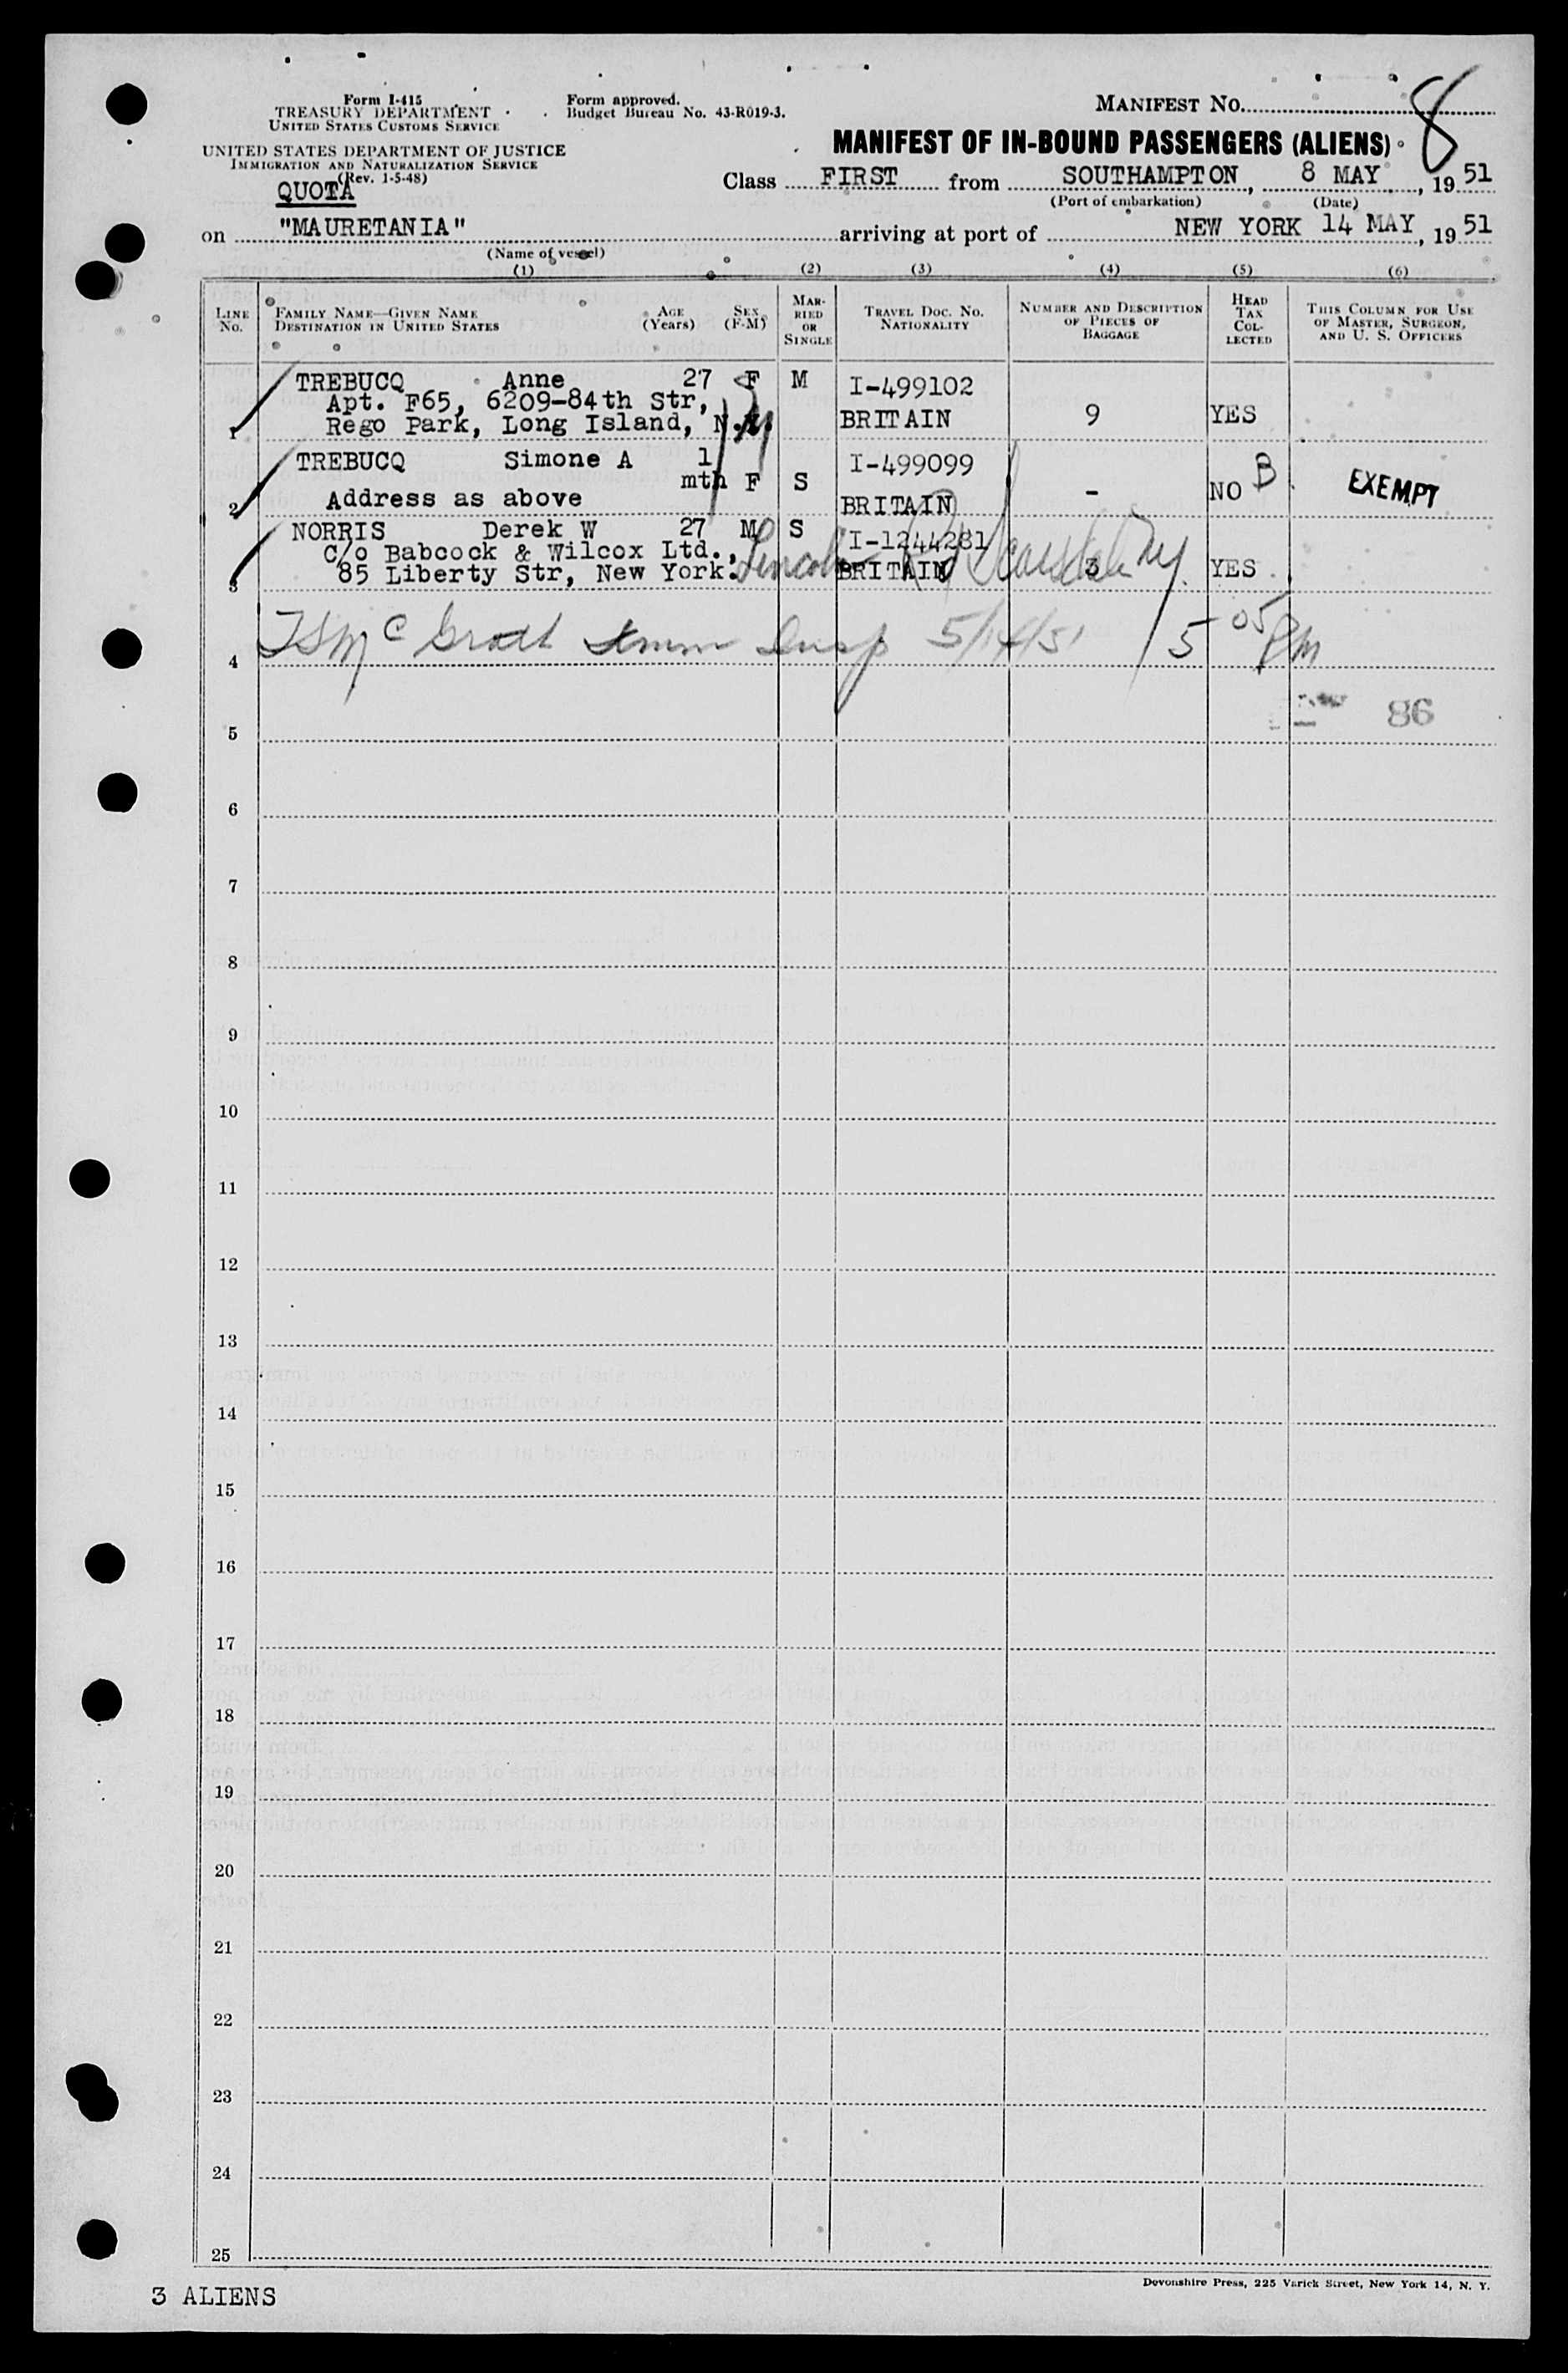 Form I-415
TREASURY DEPARTMENT
UNITED STATES CUSTOMS SERVICE
UNITED STATES DEPARTMENT OF JUSTICE
IMMIGRATION AND NATURALIZATION SERVICE
(Rev. 1-5-48)
QUOTA
Form approved.
Budget Bureau No. 43-R019-3.
MANIFEST NO. 8
MANIFEST OF IN-BOUND PASSENGERS (ALIENS)
Class FIRST from SOUTHAMPTON, 8 MAY, 19 51
(Port of embarkation) (Date)
on "MAURETANIA" arriving at port of NEW YORK 14 MAY, 19 51
(Name of vessel)
(1) (2) (3) (4) (5) (6)
LINE No.
FAMILY NAME—GIVEN NAME
DESTINATION IN UNITED STATES
AGE (Years)
SEX (F-M)
MARRIED OR SINGLE
TRAVEL DOC. NO.
NATIONALITY
NUMBER AND DESCRIPTION OF PIECES OF BAGGAGE
HEAD TAX COLLECTED
THIS COLUMN FOR USE OF MASTER, SURGEON, AND U. S. OFFICERS
TREBUCQ Anne 27 F M I-499102
Apt. F65, 6209-84th Str,
1 Rego Park, Long Island, N.Y. BRITAIN 9 YES
TREBUCQ Simone A 1 mth F S I-499099
2 Address as above BRITAIN - NO B EXEMPT
NORRIS Derek W 27 M S I-1244281
C/o Babcock & Wilcox Ltd.,
3 85 Liberty Str, New York. Lincoln Rd Scarsdale NY BRITAIN 3 YES
4 TSMcGrath Imm Insp 5/14/51 5 05 PM
86
5
6
7
8
9
10
11
12
13
14
15
16
17
18
19
20
21
22
23
24
25
3 ALIENS
Devonshire Press, 225 Varick Street, New York 14, N. Y.